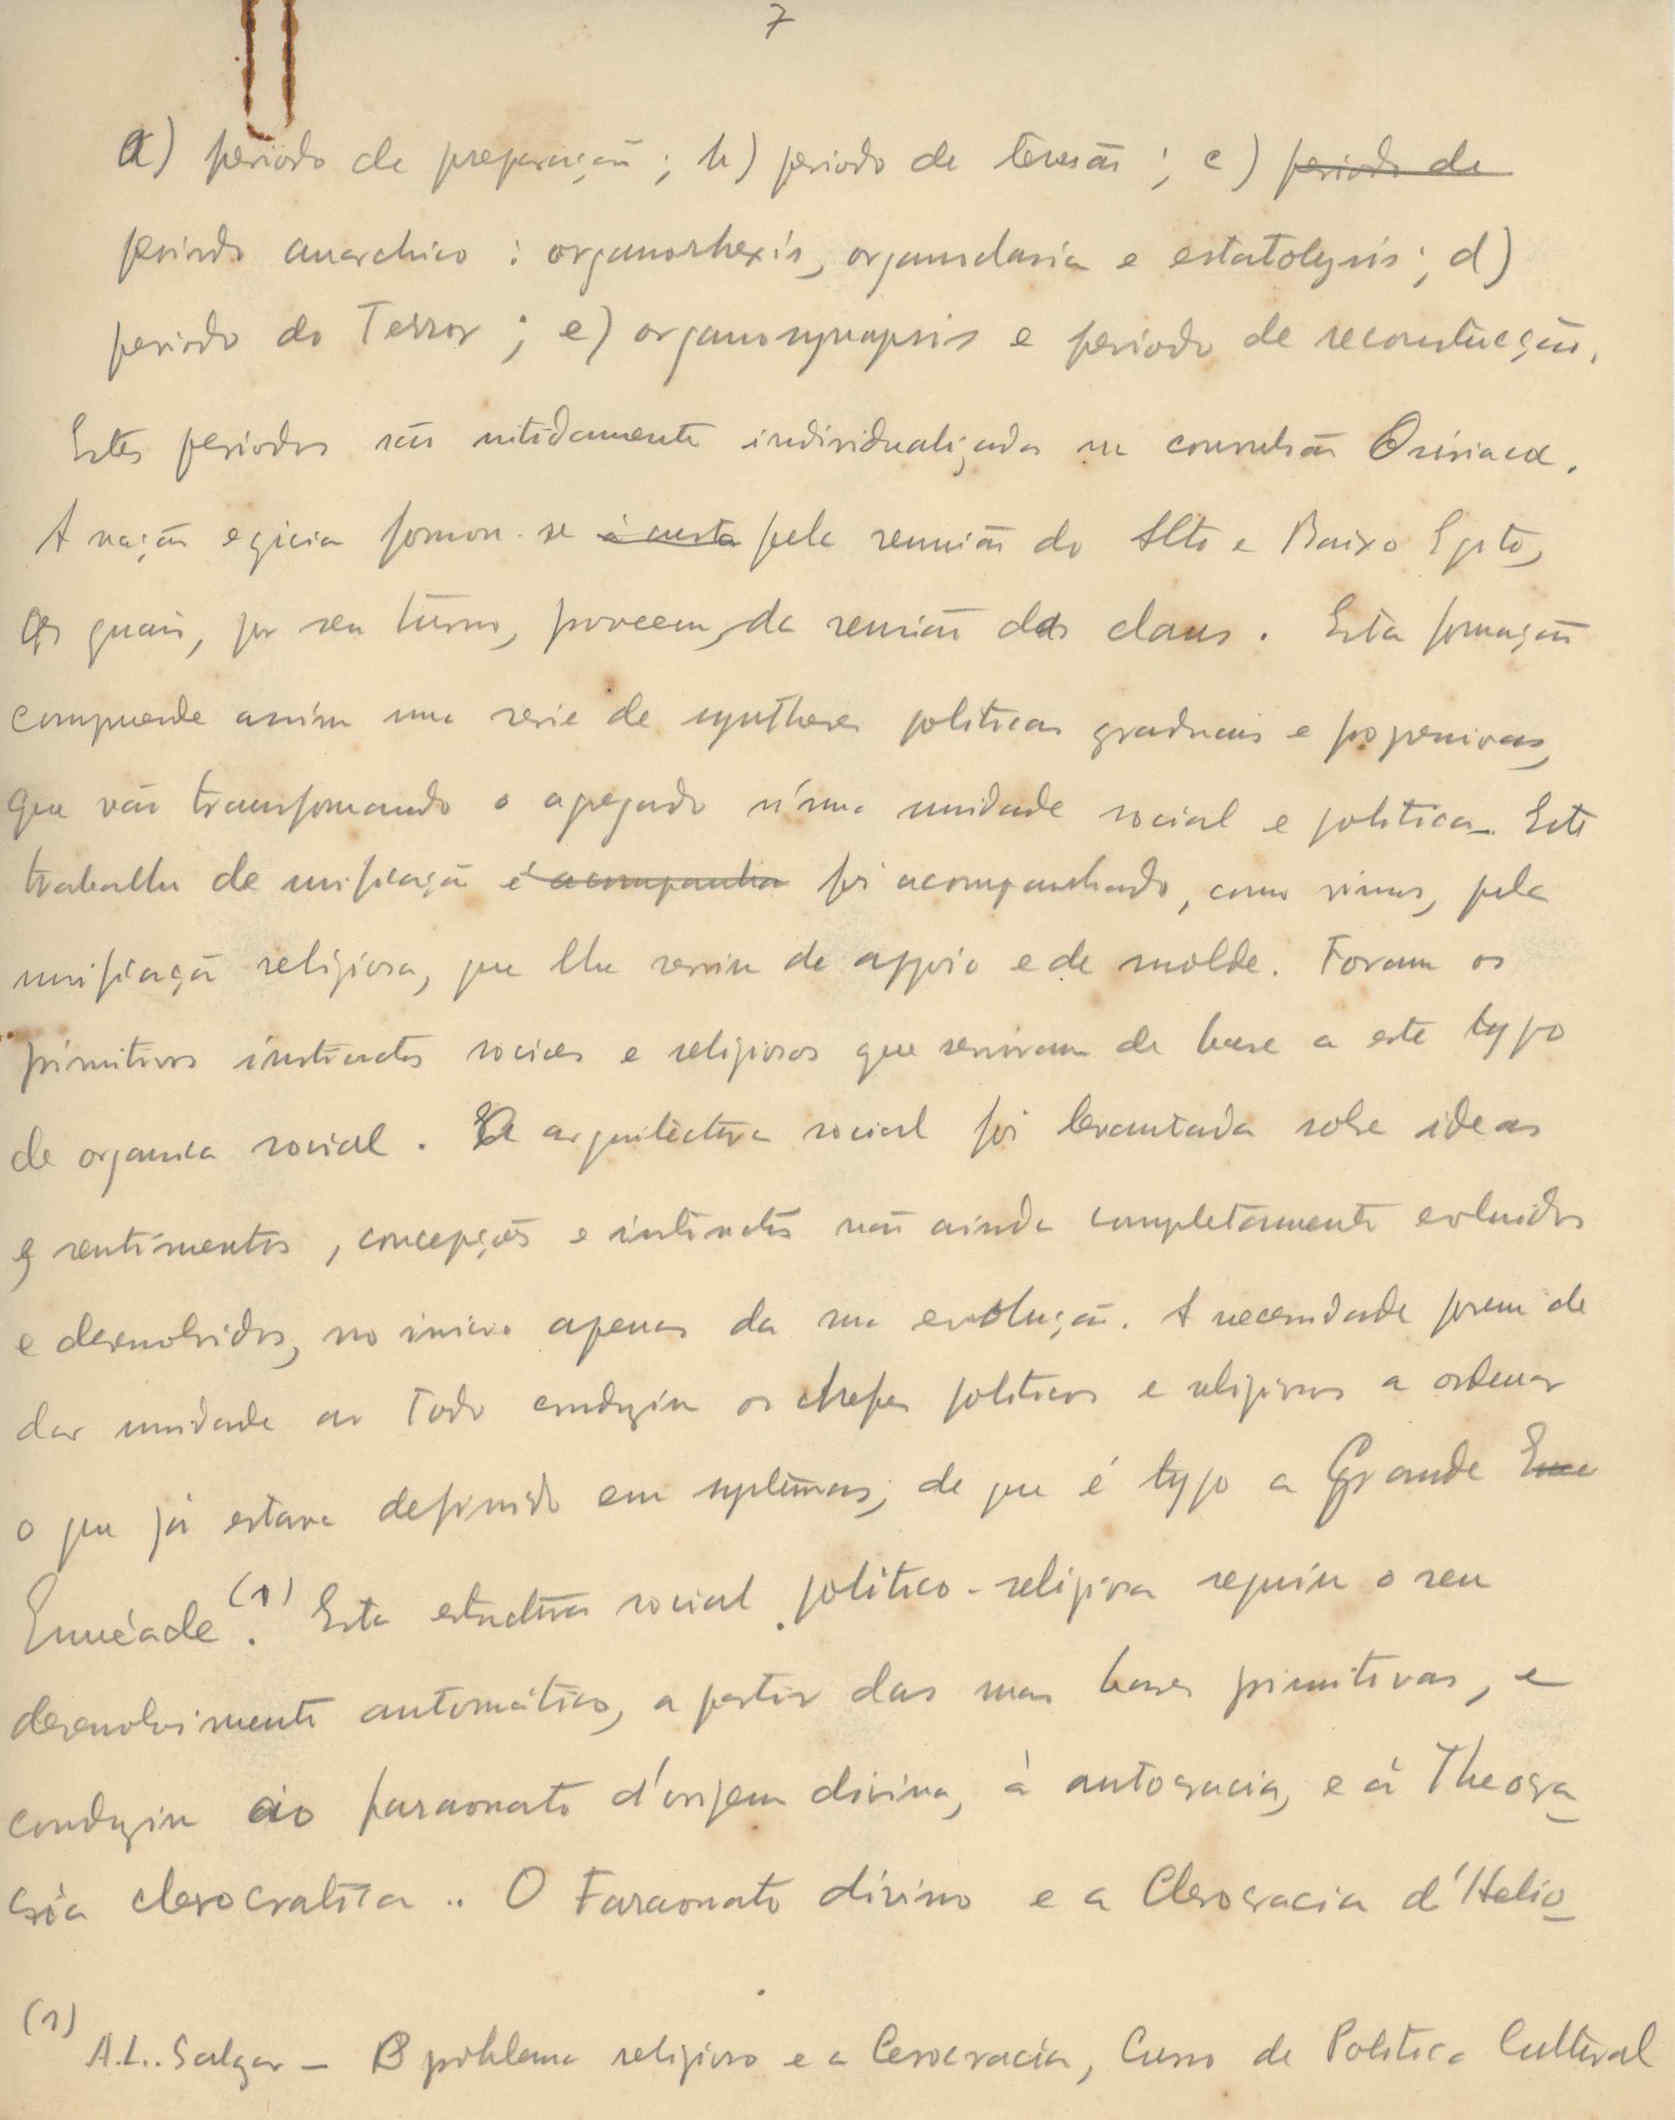 7
a) periodo de preparação; b) periodo de tensão; c) periodo de
periodo anarchico: organorhexis, organoclasia e estatolysis; d)
periodo do Terror; e) organosynapsis e periodo de reconstucção.
Estes periodos são nitidamente individualizados na convulsão Osiriaca.
A nação egicia formou-se á custa pela reunião do Alto e Baixo Egito,
os quais, por seu turno, proveem, da reunião dos clans. Esta formação
comprende assim uma serie de syntheses politicas graduais e progressivas,
que vão transformando o agregado n'uma unidade social e politica. Este
trabalho de unificação é acompanha foi acompanhado, como vimos, pela
unificação religiosa, que lhe serviu de appoio e de molde. Foram os
primitivos instinctos sociaes e religiosos que serviram de base a este typo
de organica social. A arquitectura social foi levantada sobre ideas
e sentimentos, concepções e instinctos não ainda completamente evoluidos
e desenvolvidos, no inicio apenas da sua evolução. A necessidade porem de
dar unidade ao Todo conduziu os chefes politicos e religiosos a ordenar
o que já estava definido em systemas, de que é typo a Grande Enne
Ennéade.(1) Esta estructura social politico-religiosa seguiu o seu
desenvolvimento automático, a partir das suas bases primitivas, e
conduziu ao faraonato d'origem divina, à autocracia, e á Theocra
cia clerocratica.. O Faraonato divino e a Clerocracia d'Helio
(1) A.L. Salgar - O problema religioso e a Cerocracia, Curso de Politica Cultural